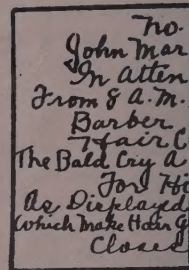 No.
John Mar
In Atten
From 8 A.M.
Barber
Hair C
The Bald Cry A
For Hi
As Displayed
Which Make Hair G
Closed